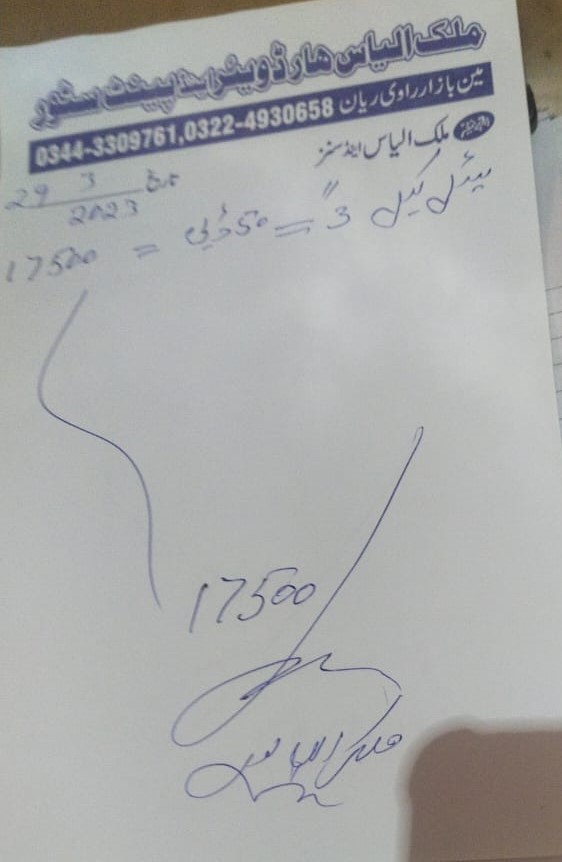 ملک الیاس ہارڈویئر اینڈ پینٹ سٹور
مین بازار راوی ریان 0344-3309761,0322-4930658
ملک الیاس اینڈ سنز
29 3 2023
سٹیل کیل 3" = 50 = 17500
17500
ملک الیاس